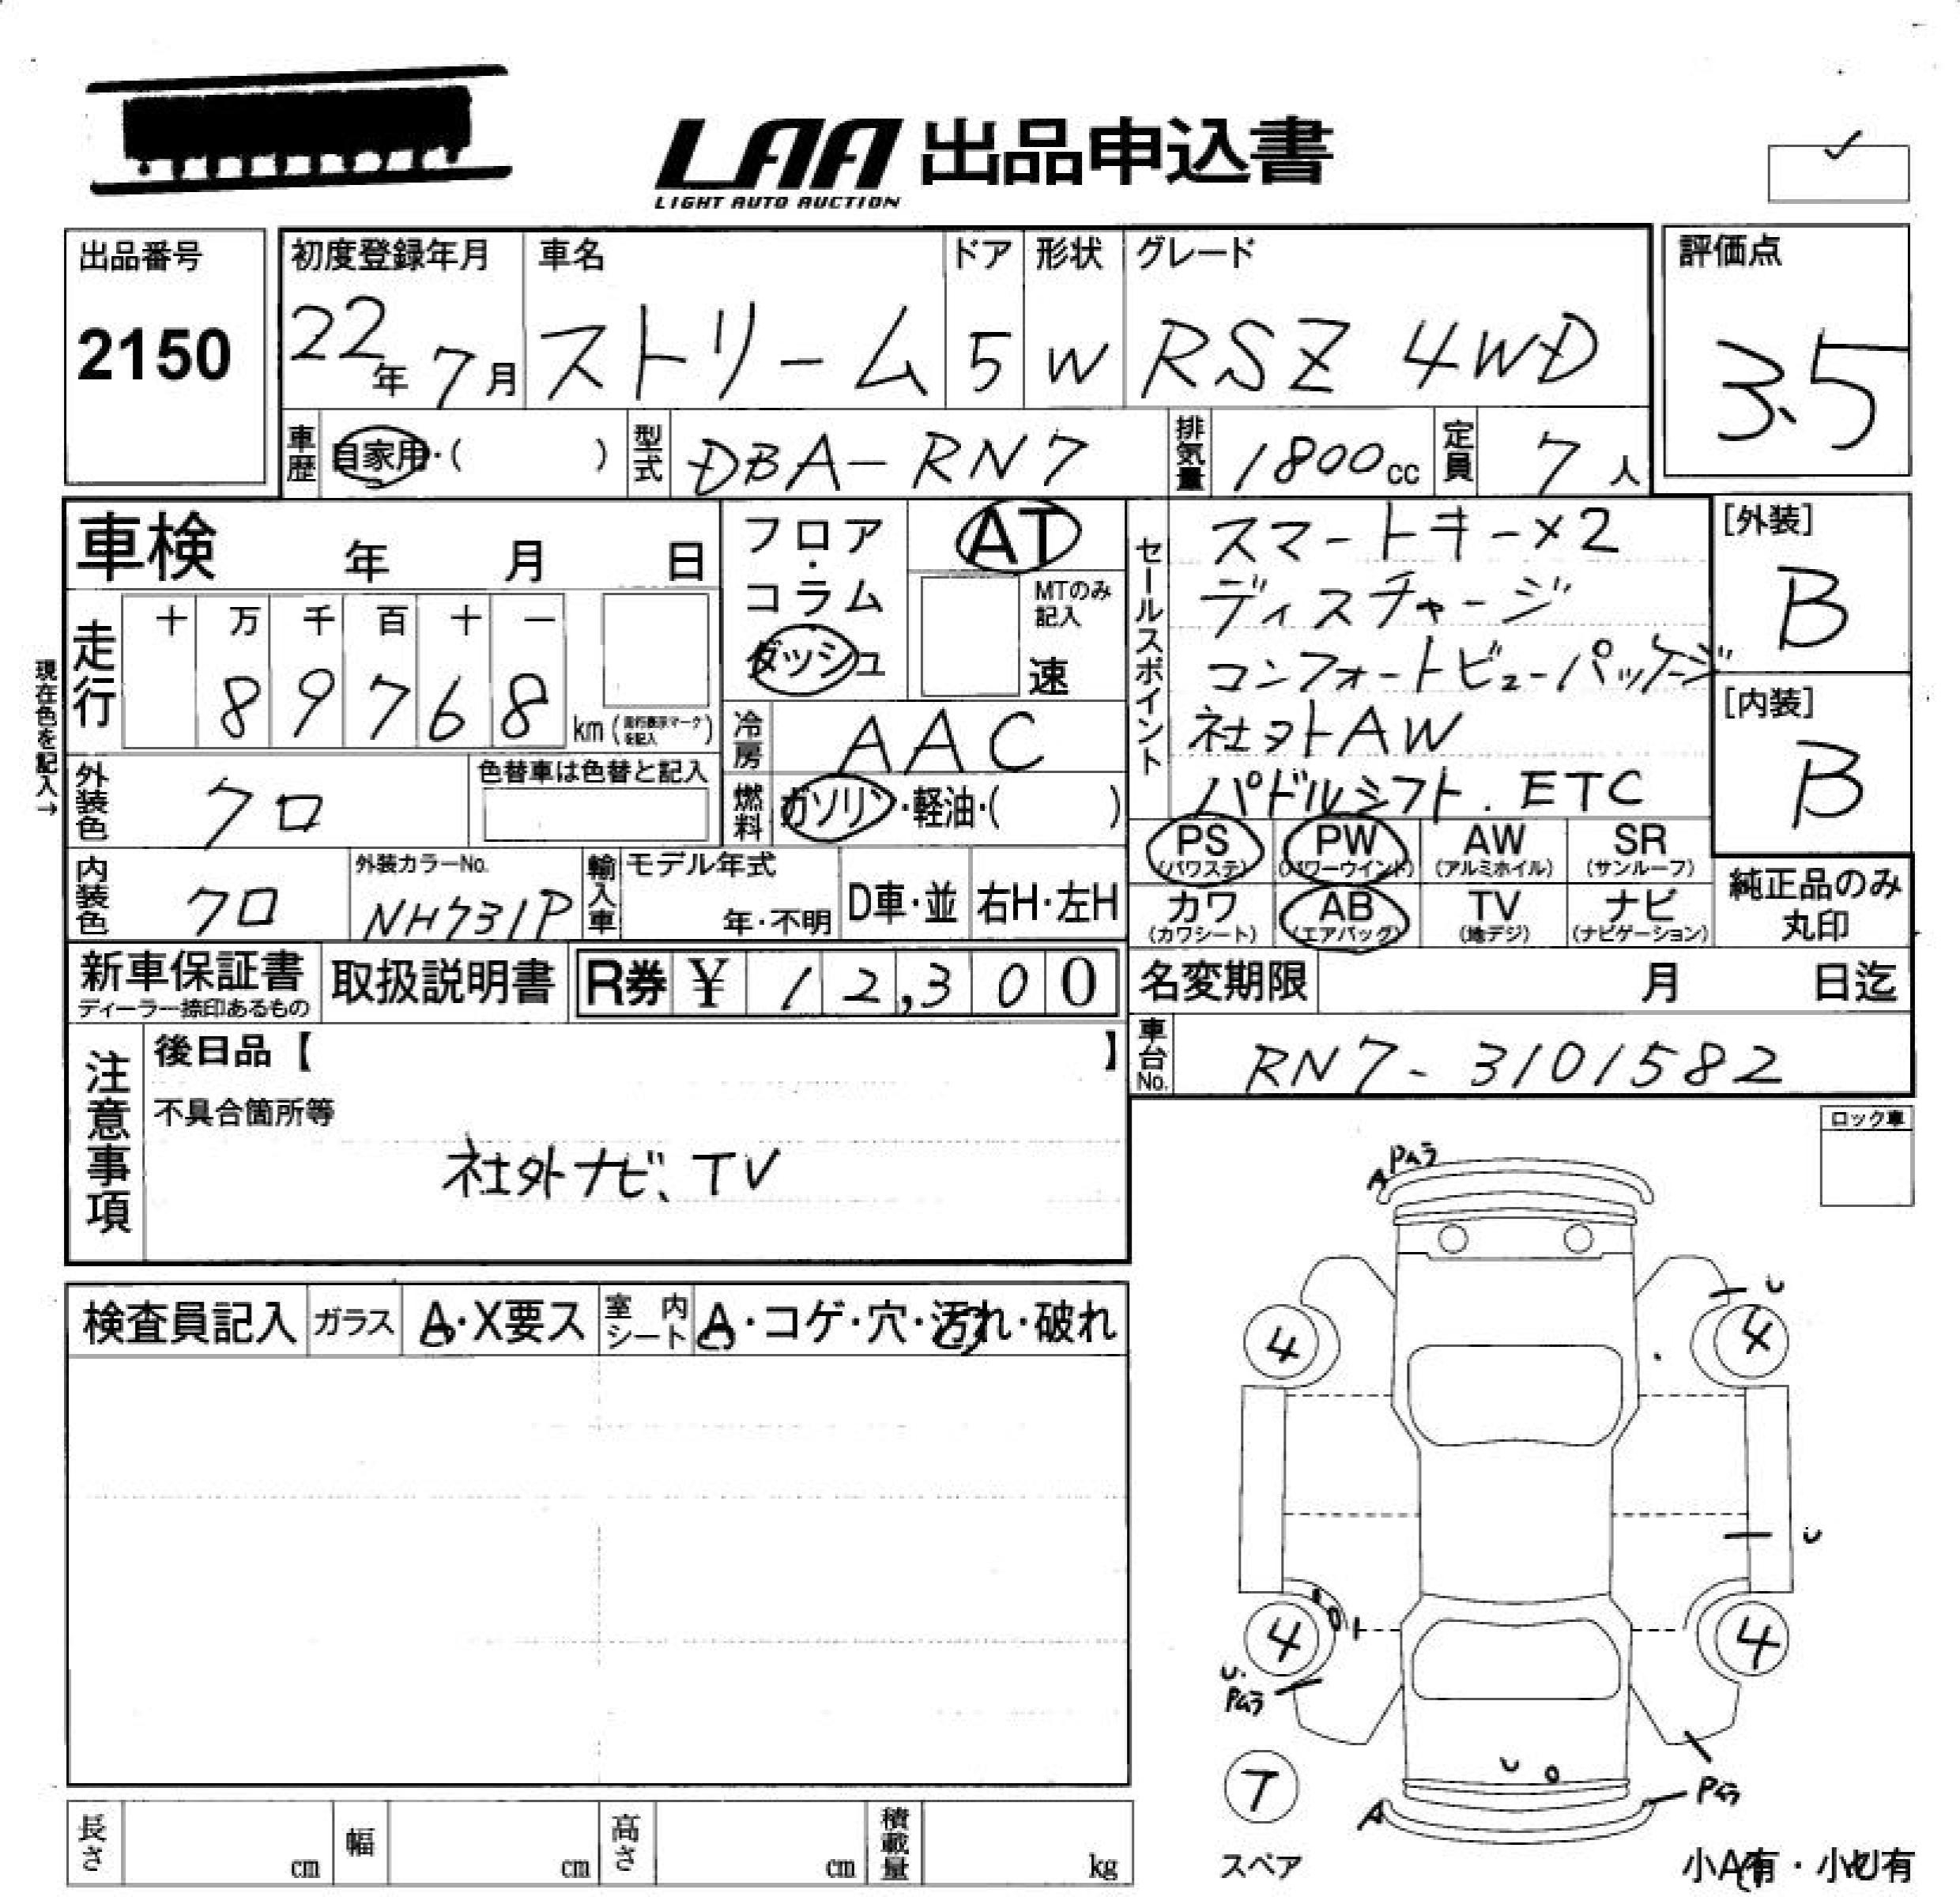 LAA 出品申込書
LIGHT AUTO AUCTION
出品番号
2150
初度登録年月
22年 7月
車名
ストリーム
ドア
5
形状
W
グレード
RSZ 4WD
評価点
3.5
車歴
自家用・( )
型式
DBA-RN7
排気量
1800cc
定員
7人
車検 年 月 日
フロア・コラム・ダッシュ
AT
MTのみ記入
速
現在色を記入→
走行
十 万 千 百 十 一
8 9 7 6 8
km (走行表示マークを記入)
冷房
AAC
燃料
ガソリン・軽油・( )
セールスポイント
スマートキー×2
ディスチャージ
コンフォートビューパッケージ
社外AW
パドルシフト. ETC
[外装]
B
[内装]
B
外装色
クロ
色替車は色替と記入
内装色
クロ
外装カラーNo.
NH731P
輸入車
モデル年式
年・不明
D車・並
右H・左H
PS (パワステ)
PW (パワーウインド)
AW (アルミホイル)
SR (サンルーフ)
カワ (カワシート)
AB (エアバッグ)
TV (地デジ)
ナビ (ナビゲーション)
純正品のみ
丸印
新車保証書
ディーラー捺印あるもの
取扱説明書
R券 ¥ 12,300
名変期限 月 日迄
車台No.
RN7-3101582
注意事項
後日品【 】
不具合箇所等
社外ナビ、TV
ロック車
検査員記入
ガラス
A・X要ス
室内シート
A・コゲ・穴・汚れ・破れ
A
4
4
4
4
U
U
U
A
T
スペア
長さ cm
幅 cm
高さ cm
積載量 kg
小A有・小U有